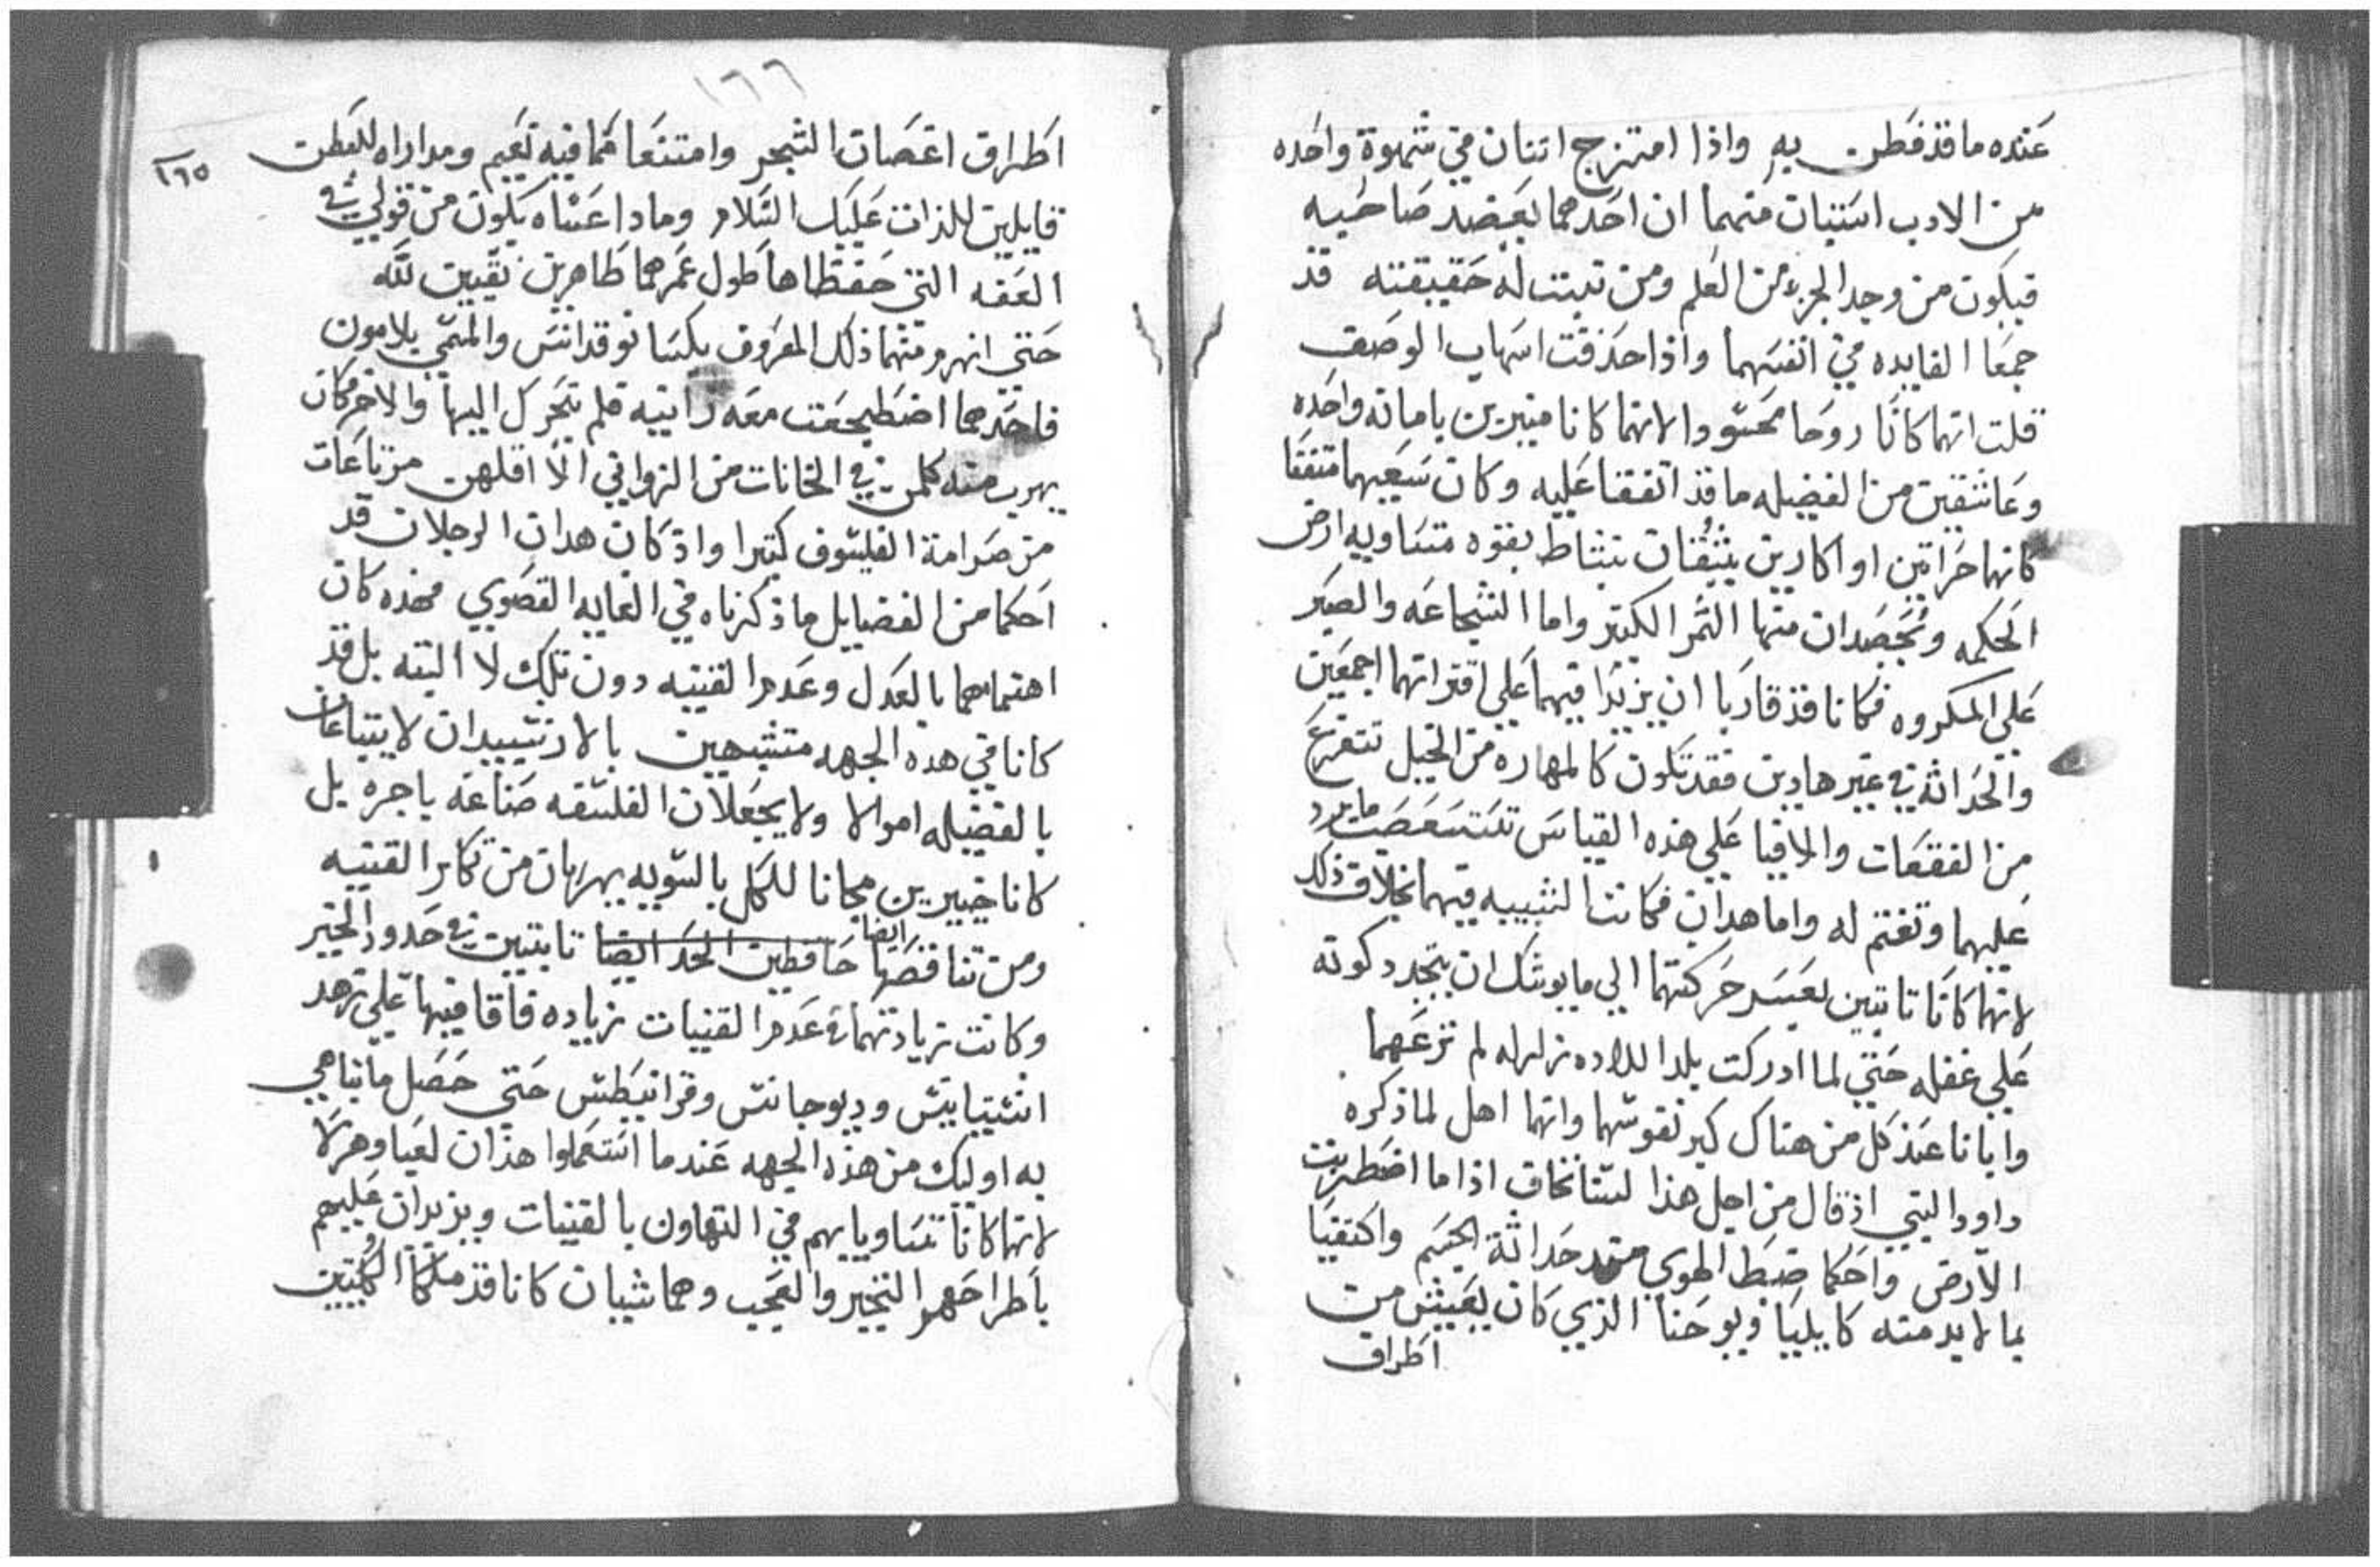 عنده ما قد فطن به واذا امتزج اتنان في شهوة واحده
من الادب استبان منهما ان احدهما يعضد صاحبه
فيكون من وجد الجزء من العلم ومن تبتت له حقيقته قد
جمعا الفايده في انفسهما واذا حذفت اسهاب الوصف
قلت انهما كانا روحا محسودا لانهما كانا منيرين بامانه واحده
وعاشقين من الفضيله ما قد اتفقنا عليه وكان سعيهما متفقا
كانهما حراتين او اكارين يتيقنان بنشاط بقوه متساويه ارض
الحكمه ويحصدان منها التمر الكتير واما الشجاعه والصبر
علي المكروه فكانا قد قاربا ان يزيدا فيهما علي اقترانهما اجمعين
والحداثه في غير هادين فقد تكون كالمهاره من الخيل تتفزع
من الفقعات والافيا علي هذه القياس تستسعصت ما يرد
عليهما وتغتم له واما هدان فكانت الشبيبه فيهما بخلاف ذلك
لانهما كانا تابتين بعسر حركتهما الي ما يوشك ان يتجدد كونه
علي غفله حتي لما ادركت بلدا للاده زلزله لم تزعهما
وابانا عند كل من هناك كبر نفوسهما وانهما اهل لما ذكره
داوود النبي اذ قال من اجل هذا لسنا نخاف اذا ما اضطربت
الارض واحكما ضبط الهوي منذ حداثة الجسم واكتفيا
بما لا بد منه كايليا ويوحنا الذي كان يعيش من
اطراف
١٦٦
١٦٥
اطراف اغصان الشجر وامتنعا مما فيه نعيم ومداراه للبطن
قايلين للذات عليك السلام وماذا عساه يكون من قولي في
العفه التي حفظاها طول عمرهما طاهرين نقيين لله
حتي انهزم منهما ذلك المعروف بكسانوقدانس والمسمي بلامون
فاحدهما اضطجعت معه زانيه فلم يتحرك اليها والاخر كان
يهرب منه كلمن في الخانات من الزواني الا اقلهن مرتاعات
من صرامة الفيلسوف كتيرا واذ كان هدان الرجلان قد
احكما من الفضايل ما ذكرناه في الغايه القصوي فهذه كان
اهتمامهما بالعدل وعدم القنيه دون تلك لا البته بل قد
كانا في هده الجهه متشبهين بالارنسييدان لا يبتاعان
بالفضيله اموالا ولا يجعلان الفلسفه صناعه باجره بل
كانا خيرين مجانا للكل بالسويه يهربان من تكابر القنيه
ومن تناقصها ايضا حافظين الحد ايضا تابتين في حدود الخير
وكانت زيادتهما في عدم القنيات زياده فاقا فيها علي زهد
انتيتانيس وديوجانس وقرانيطس حتي حصل ما تباهي
به اوليك من هذه الجهه عندما استعملوا هذان لعبا وهزلا
لانهما كانا تساويا بهم في التهاون بالقنيات ويزيدان عليهم
باطراحهم التخيير والعجب وهما شيان كانا قد ملكا الكلبيين